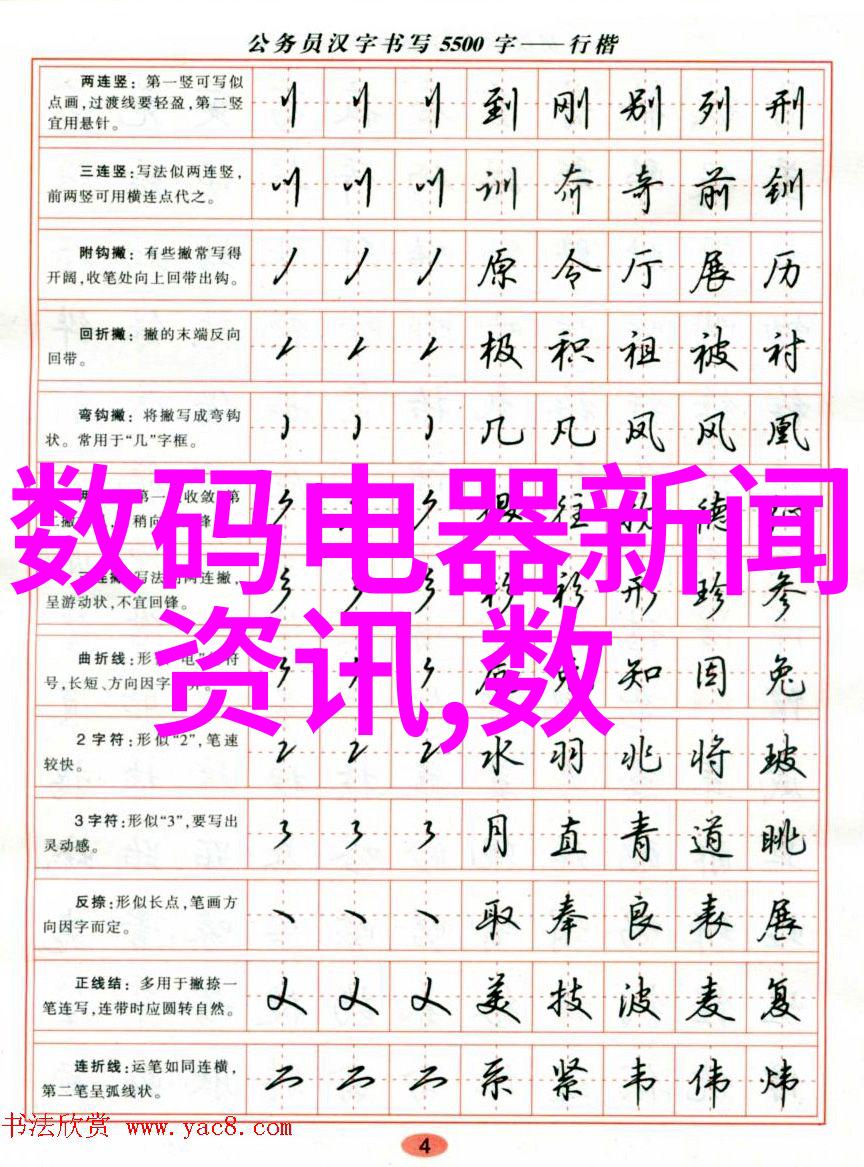 公务员汉字书写5500字——行楷
两连竖：第一竖可写似
点画,过渡线要轻盈,第二竖
宜用悬针。
到 刚 别 列 刑
三连竖:写法似两连竖,
前两竖可用横连点代之。
训 夼 奇 前 钏
附钩撇：有些撇常写得
开阔,收笔处向上回带出钩。
原 令 厅 展 历
回折撇：撇的末端反向
回带。
极 积 祖 被 衬
弯钩撇：将撇写成弯钩
状。常用于“几”字框。
几 凡 凤 风 凰
第一 收敛 第
撇 稍向 锋
往 德
数码电器新闻
写法 两连撇,
呈游动状,不宜回锋。
杉 衫 形 珍 参
资讯,数
曲折线:形 “电” 符
号,长短、方向因字 异。
知 因 兔
2字符:形似“2”,笔速
较快。
水 羽 兆 将 玻
3字符:形似“3”,要写出
灵动感。
月 直 青 道 眺
反捺:形似长点,笔画方
向因字而定。
取 奉 良 表 展
正线结：多用于撇捺一
笔连写,连带时应圆转自然。
美 技 波 麦 复
连折线:运笔如同连横,
第二笔呈弧线状。
系 紧 韦 伟 炜
书法欣赏 www.yac8.com
4